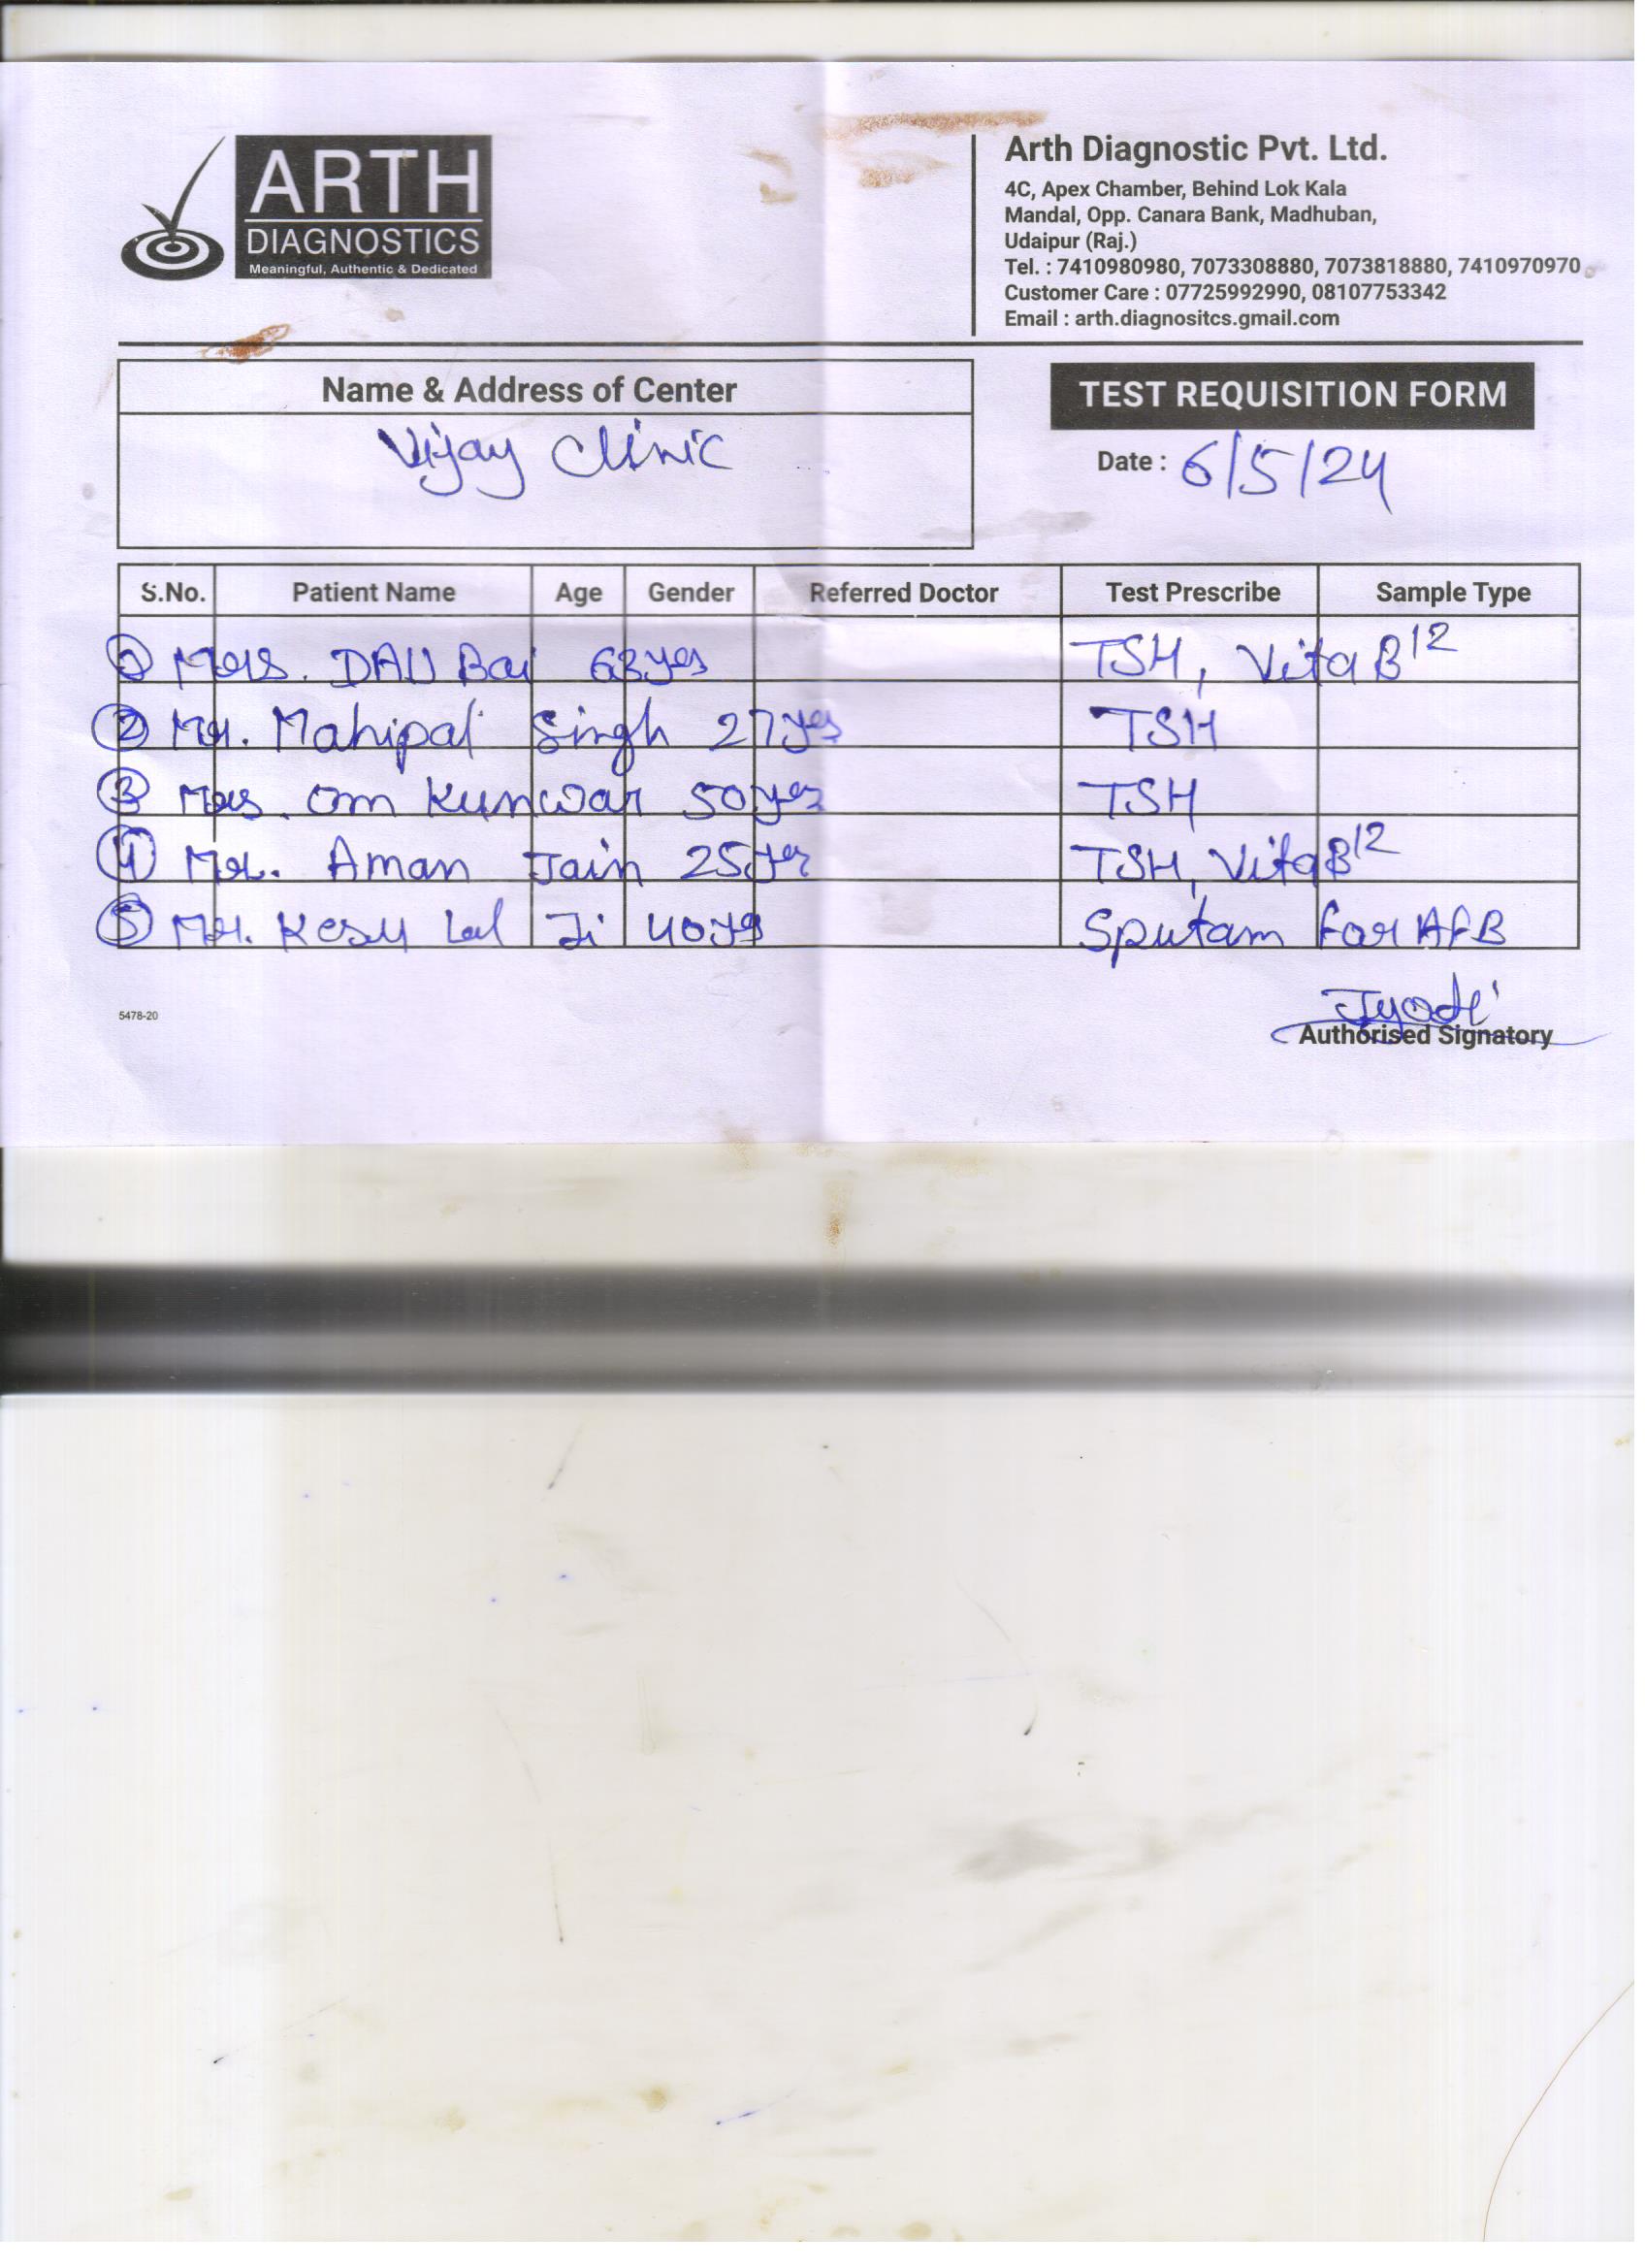 ARTH
DIAGNOSTICS
Meaningful, Authentic & Dedicated
Arth Diagnostic Pvt. Ltd.
4C, Apex Chamber, Behind Lok Kala
Mandal, Opp. Canara Bank, Madhuban,
Udaipur (Raj.)
Tel. : 7410980980, 7073308880, 7073818880, 7410970970
Customer Care : 07725992990, 08107753342
Email : arth.diagnositcs.gmail.com
Name & Address of Center
Vijay Clinic
TEST REQUISITION FORM
Date : 6/5/24
S.No. Patient Name Age Gender Referred Doctor Test Prescribe Sample Type
1 Mrs. DAU Bai 63 yrs TSH, Vita B12
2 Mr. Mahipal Singh 27 yrs TSH
3 Mrs. Om Kunwar 50 yrs TSH
4 Mr. Aman Jain 25 yr TSH, Vita B12
5 Mr. Kesu Lal Ji 40 yrs Sputam for AFB
Jyoti
5478-20
Authorised Signatory